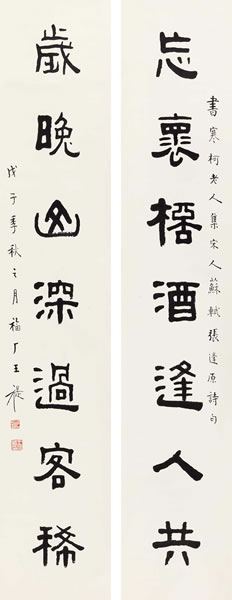 書寒柯老人集宋人蘇軾張達原詩句
忘褱桮酒逢人共
歲晚山深過客稀
戊子季秋之月福厂王禔